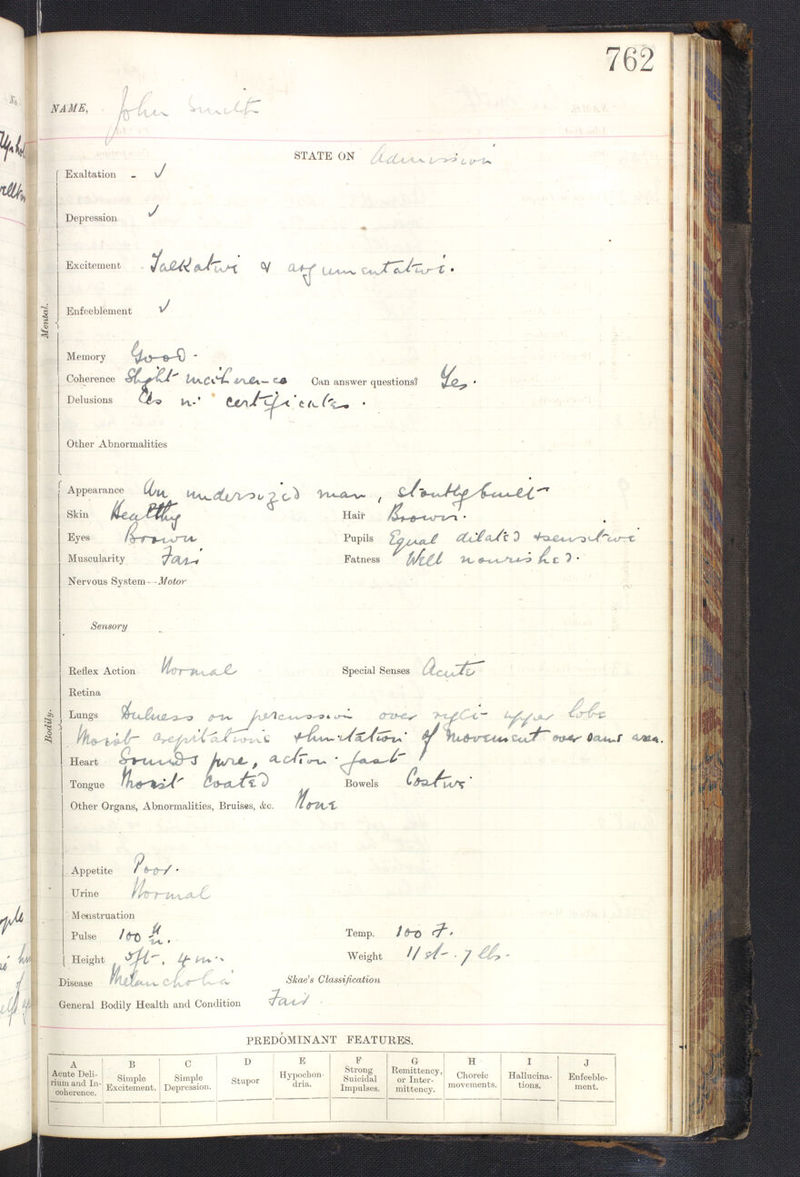 762
NAME, John Smith
STATE ON Admission
Mental.
Exaltation - ✓
Depression ✓
Excitement Talkative & argumentative.
Enfeeblement ✓
Memory Good.
Coherence Slight incoherence Can answer questions? Yes.
Delusions As in certificates.
Other Abnormalities
Bodily.
Appearance An undersized man, stoutly built
Skin Healthy Hair Brown.
Eyes Brown Pupils Equal dilated & sensitive
Muscularity Fair Fatness Well nourished.
Nervous System—Motor
Sensory
Reflex Action Normal Special Senses Acute
Retina
Lungs Dulness on percussion over right upper lobe
Moist crepitations & limitation of movement over same area.
Heart Sounds pure, action fast
Tongue Moist coated Bowels Costive
Other Organs, Abnormalities, Bruises, &c. None
Appetite Poor.
Urine Normal
Menstruation
Pulse 100 Temp. 100 F.
Height 5ft. 4 in. Weight 11 st. 7 lbs.
Disease Melancholia Skae's Classification
General Bodily Health and Condition Fair
PREDOMINANT FEATURES.
A B C D E F G H I J
Acute Delirium and Incoherence. Simple Excitement. Simple Depression. Stupor Hypochondria. Strong Suicidal Impulses. Remittency, or Intermittency. Choreic movements. Hallucinations. Enfeeblement.